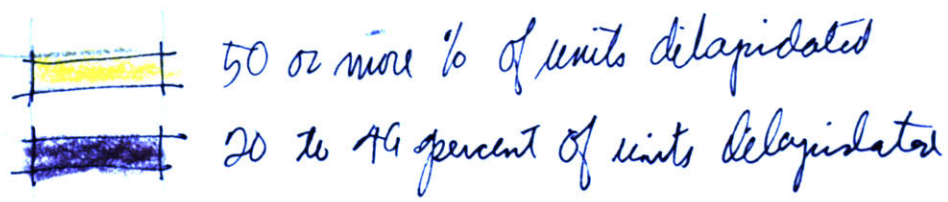 50 or more % of units dilapidated
20 to 49 percent of units delapidated